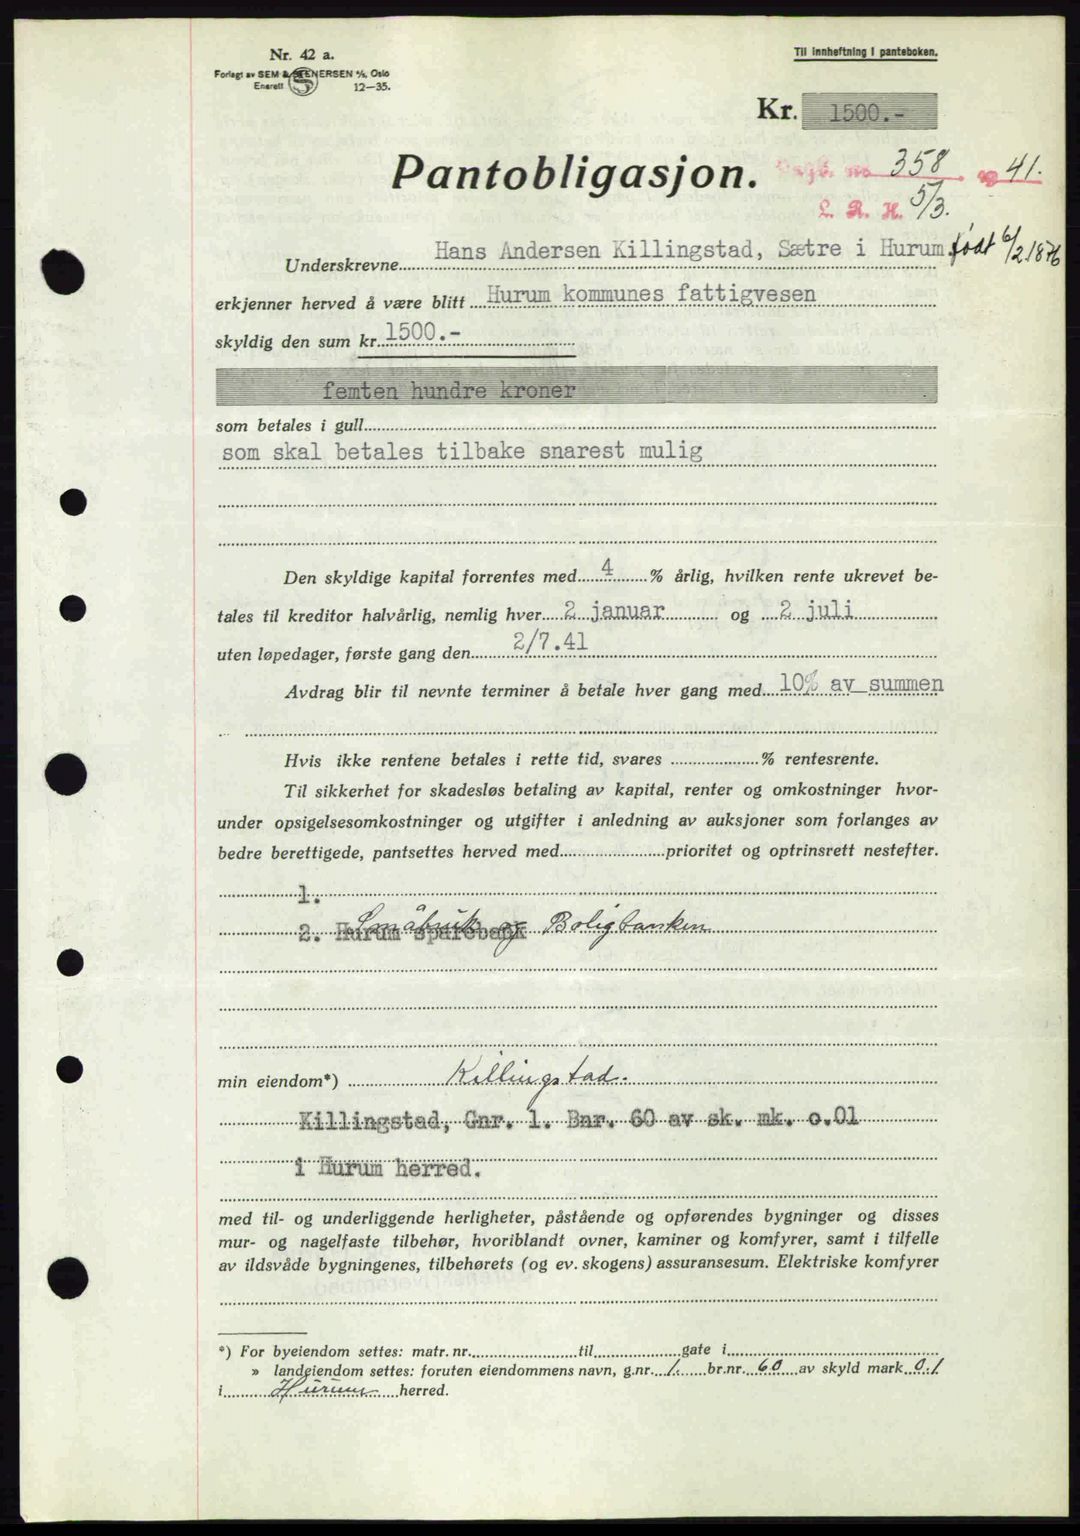 Nr. 42 a.
Forlagt av SEM & STENERSEN A/S, Oslo
Enerett 12—35.
Til innheftning i panteboken.
Kr. 1500.-
Pantobligasjon.
Dagb. no 358 19 41.
L. R. H. 5/3.
Underskrevne Hans Andersen Killingstad, Sætre i Hurum. født 6/2.1876
erkjenner herved å være blitt Hurum kommunes fattigvesen
skyldig den sum kr. 1500.-
femten hundre kroner
som betales i gull
som skal betales tilbake snarest mulig
Den skyldige kapital forrentes med 4 % årlig, hvilken rente ukrevet be-
tales til kreditor halvårlig, nemlig hver 2 januar og 2 juli
uten løpedager, første gang den 2/7.41
Avdrag blir til nevnte terminer å betale hver gang med 10% av summen
Hvis ikke rentene betales i rette tid, svares % rentesrente.
Til sikkerhet for skadesløs betaling av kapital, renter og omkostninger hvor-
under opsigelsesomkostninger og utgifter i anledning av auksjoner som forlanges av
bedre berettigede, pantsettes herved med prioritet og optrinsrett nestefter.
1.
2. Hurum sparebank Småbruk og Boligbanken
min eiendom*) Killingstad.
Killingstad, Gnr. 1. Bnr. 60 av sk. mk. o.01
i Hurum herred.
med til- og underliggende herligheter, påstående og opførendes bygninger og disses
mur- og nagelfaste tilbehør, hvoriblandt ovner, kaminer og komfyrer, samt i tilfelle
av ildsvåde bygningenes, tilbehørets (og ev. skogens) assuransesum. Elektriske komfyrer
*) For byeiendom settes: matr. nr. til gate i
» landeiendom settes: foruten eiendommens navn, g.nr. 1. br.nr. 60 av skyld mark 0.1
i Hurum herred.